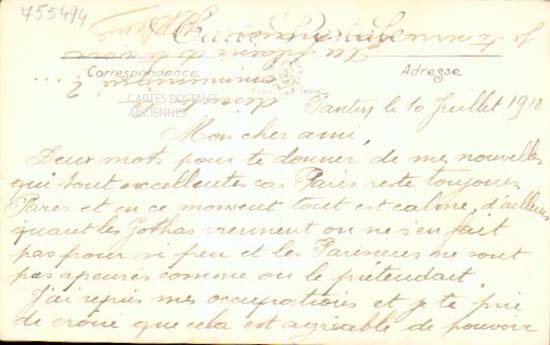 755494
Carte Postale
Correspondance
Adresse
CARTES POSTALES
ANCIENNES
Pantin le 10 Juillet 1918
Mon cher ami,
Deux mots pour te donner de mes nouvelles
qui sont excellentes car Paris reste toujours
Paris et en ce moment tout est calme, d'ailleurs
quant les Gothas viennent on ne s'en fait
pas pour si peu et les Parisiens ne sont
pas apeurés comme on le prétendait.
J'ai repris mes occupations et je te prie
de croire que cela est agréable de pouvoir